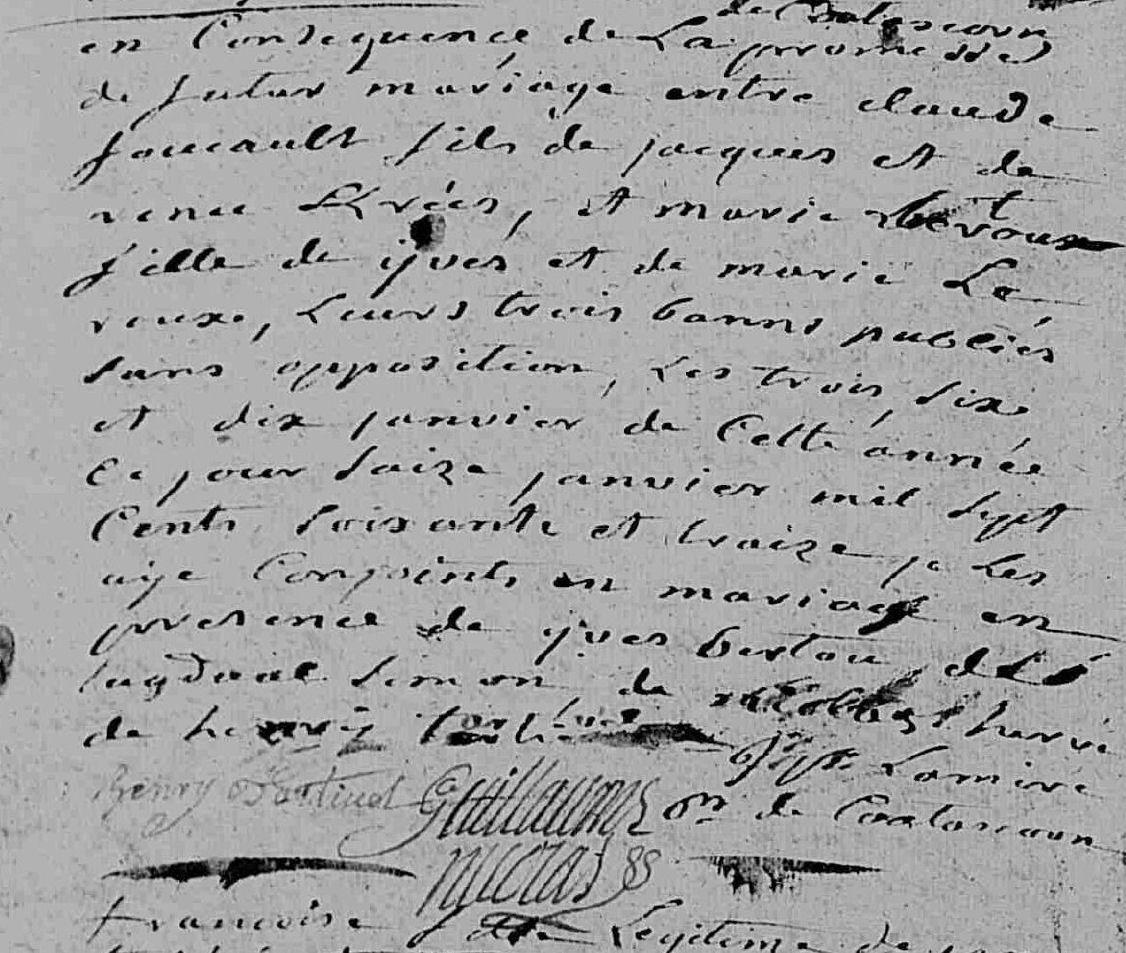 en Consequence de La promesse
de futur mariage entre claude
foucault fils de jacques et de
renee et marie
fille de yves et de marie Le
roux, Leurs trois banns publiés
sans opposition, Les trois, six
et dix janvier de Cette année
Ce jour saize janvier mil sept
Cents soixante et traize je Les
aye Conjoints en mariage en
presence de yves
tugdual simon, de herve
de henry
Henry Guillaume
nicolas
francoise fille Legitime de